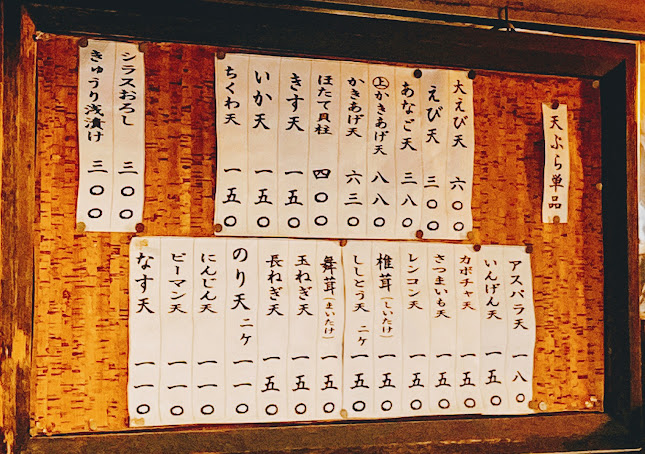 天ぷら単品
大えび天 六〇〇
えび天 三〇〇
あなご天 三八〇
㊤かきあげ天 八八〇
かきあげ天 六三〇
ほたて貝柱 四〇〇
きす天 一五〇
いか天 一五〇
ちくわ天 一五〇
シラスおろし 三〇〇
きゅうり浅漬け 三〇〇
アスパラ天 一八〇
いんげん天 一五〇
カボチャ天 一五〇
さつまいも天 一五〇
レンコン天 一五〇
椎茸(しいたけ) 一五〇
ししとう天 二ケ 一五〇
舞茸(まいたけ) 一五〇
玉ねぎ天 一五〇
長ねぎ天 一五〇
のり天 二ケ 一一〇
にんじん天 一一〇
ピーマン天 一一〇
なす天 一一〇